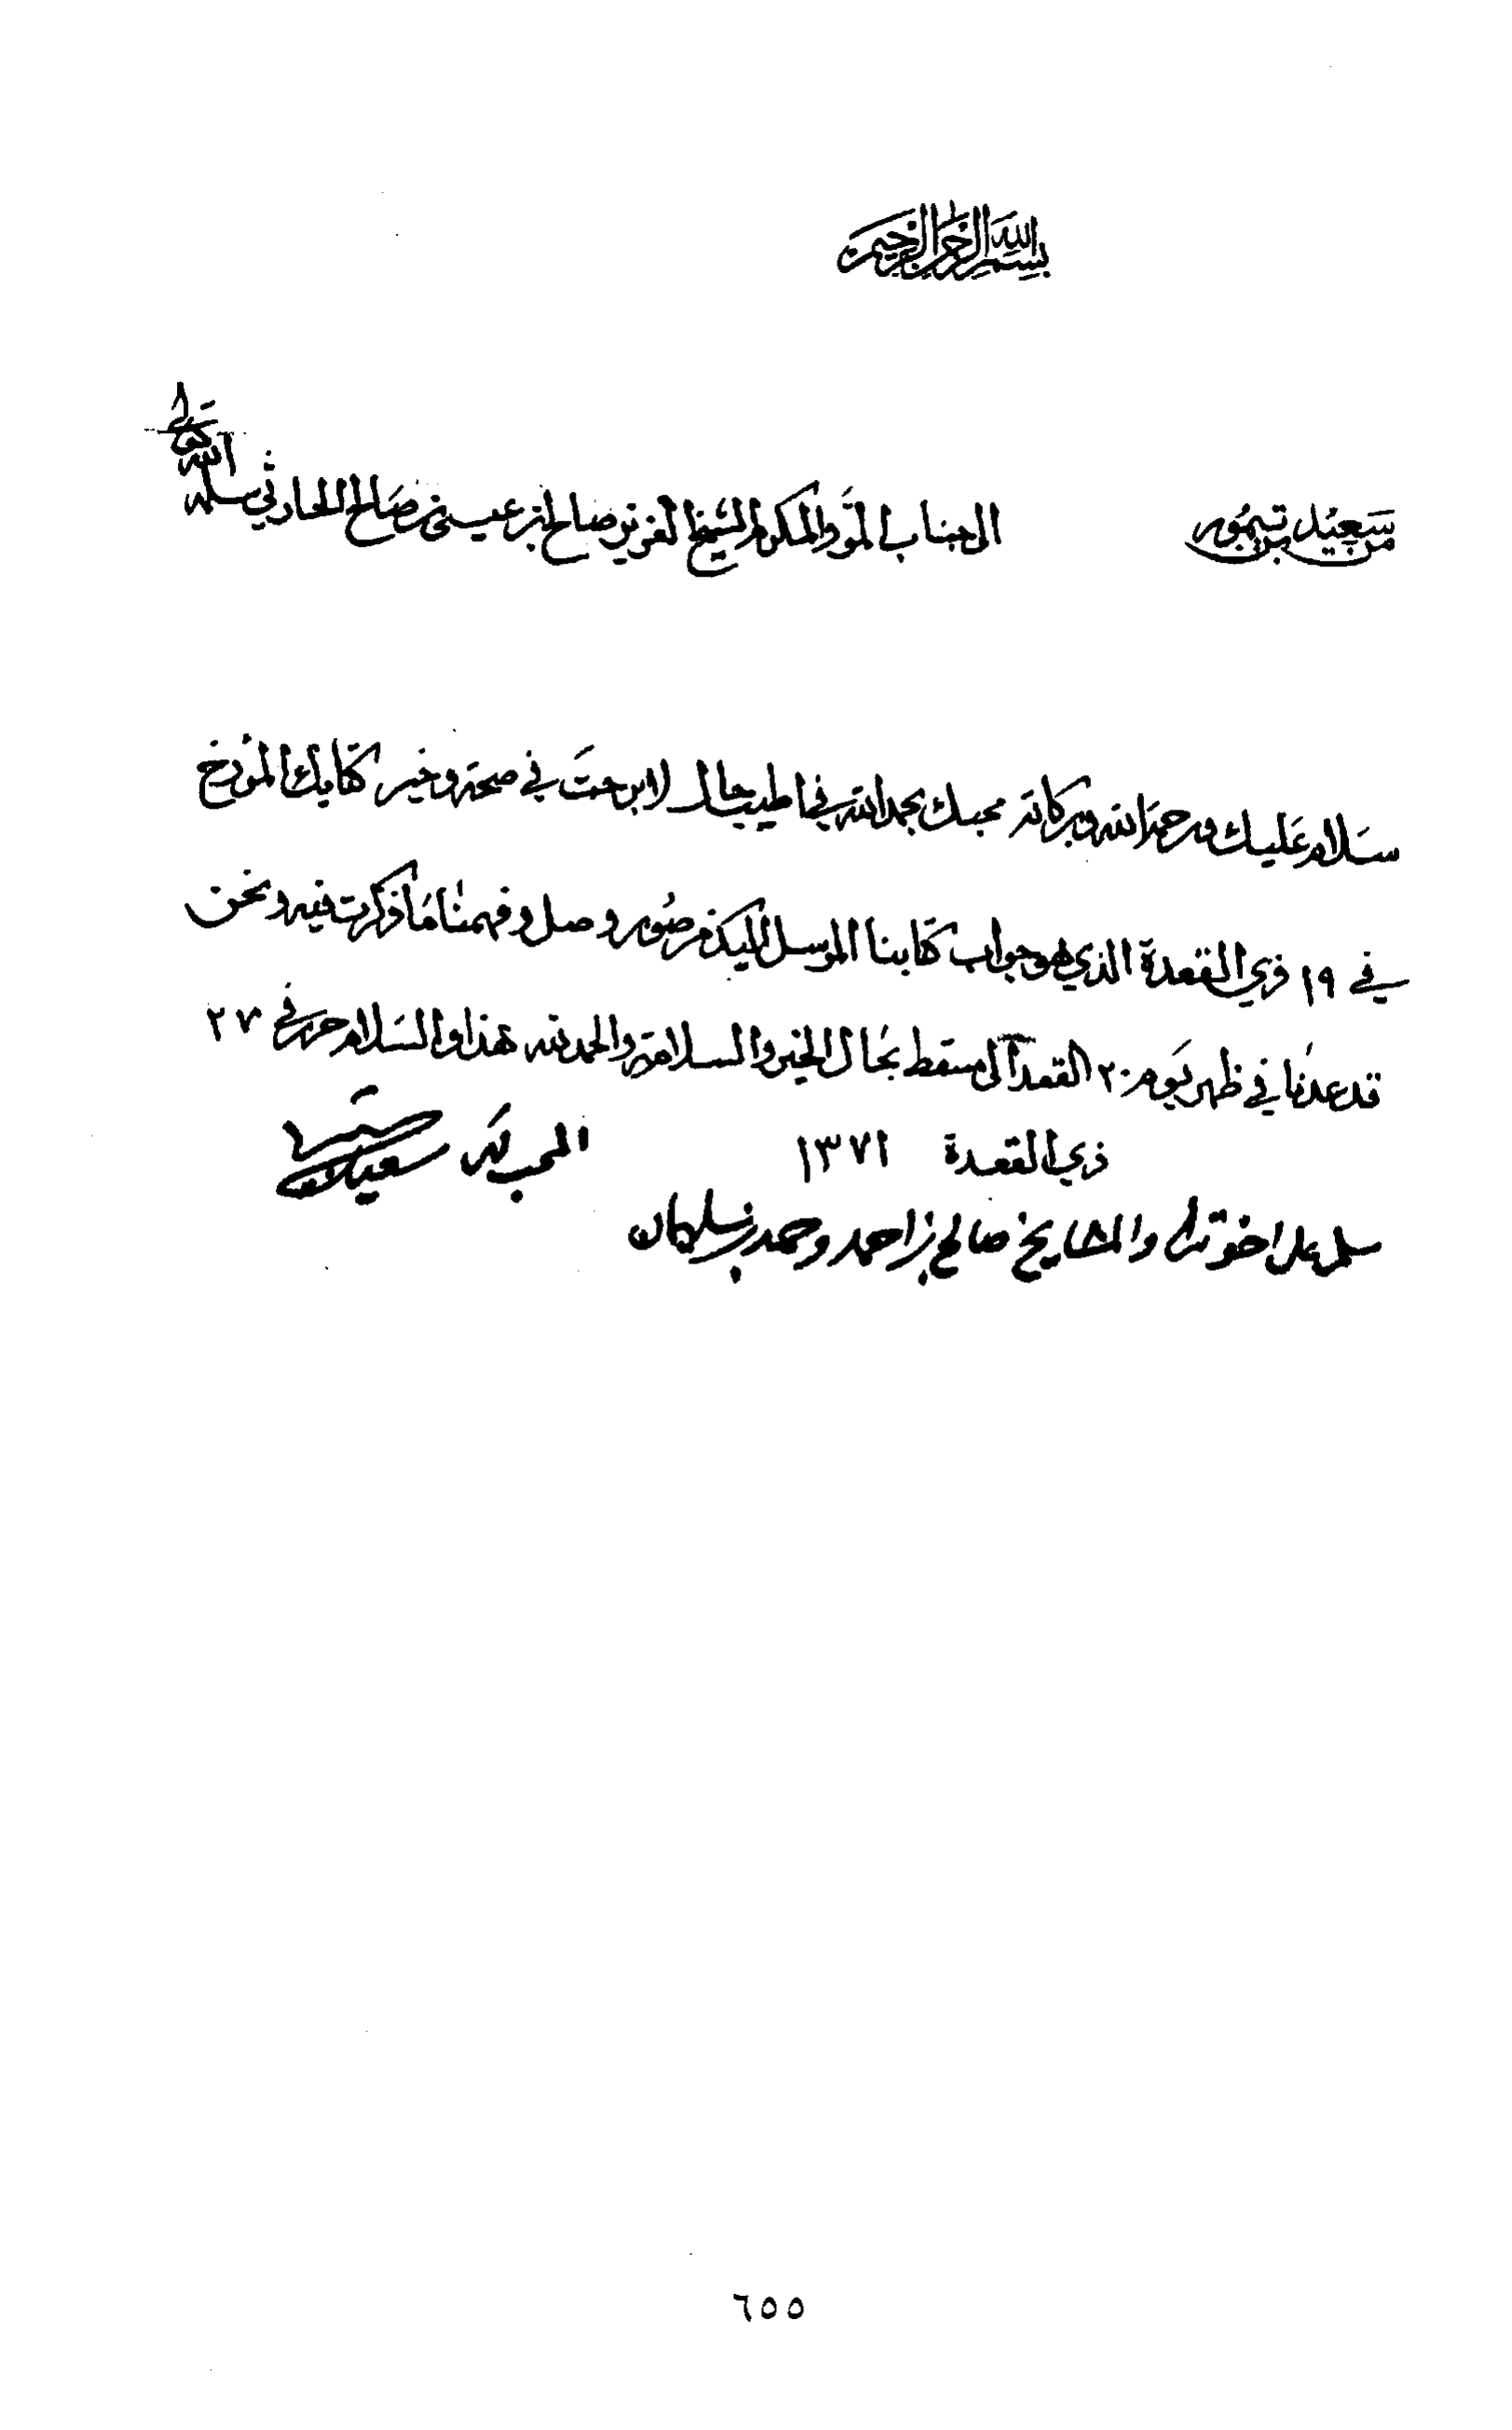 بسم الله الرحمن الرحيم
من سعيد بن تيمور
الى جناب المود المكرم الشيخ العزيز صالح بن عيسى بن صالح الحارثي سلمه الله تعالى
سلام عليك ورحمة الله وبركاته محبك بحمد الله في اطيب حال لا برحت في صحة وخير كتابك المؤرخ
في ١٩ ذي القعدة الذي هو جواب كتابنا المرسل اليك من صور وصل وفهمنا ما ذكرت فيه ونحن
قد عدنا في ظهر يوم ٢٠ القعدة الى مسقط بحال الخير والسلامة والحمد لله هذا والسلام حرر في ٢٧
ذي القعدة ١٣٧١
المحب لك سعيد
سلم على اخوتك والمشايخ صالح بن احمد وحمد بن سليمان
٦٥٥